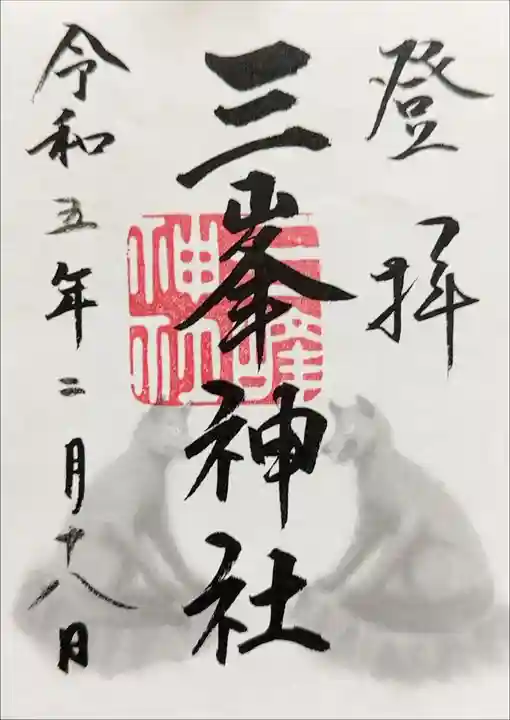 登拝
三峯神社
三峯神社
令和五年二月十八日